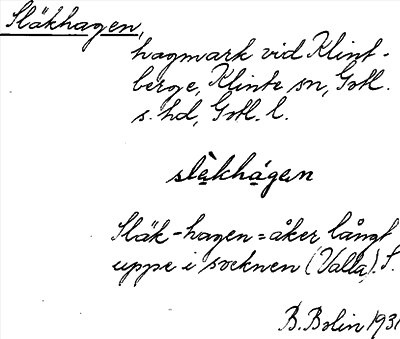 Släkhagen,
hagmark vid Klint-
berge, Klinte sn, Gotl.
s. hd, Gotl. l.
slàkhágan
Släk-hagen = åker långt
uppe i socknen (Valla). S.
B. Bolin 1931